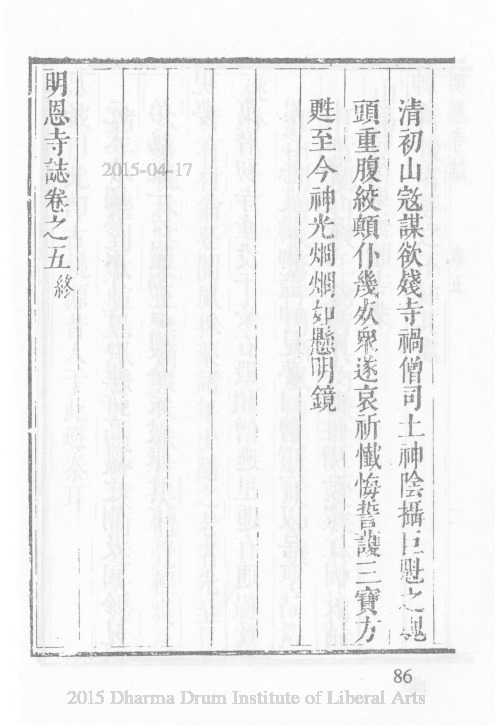 清初山寇謀欲殘寺禍僧司土神陰攝巨魁之魂
頭重腹絞顛仆幾死衆遂哀祈懺悔誓護三寶方
甦至今神光烱烱如懸明鏡
明恩寺誌卷之五終
2015-04-17
86
2015 Dharma Drum Institute of Liberal Arts